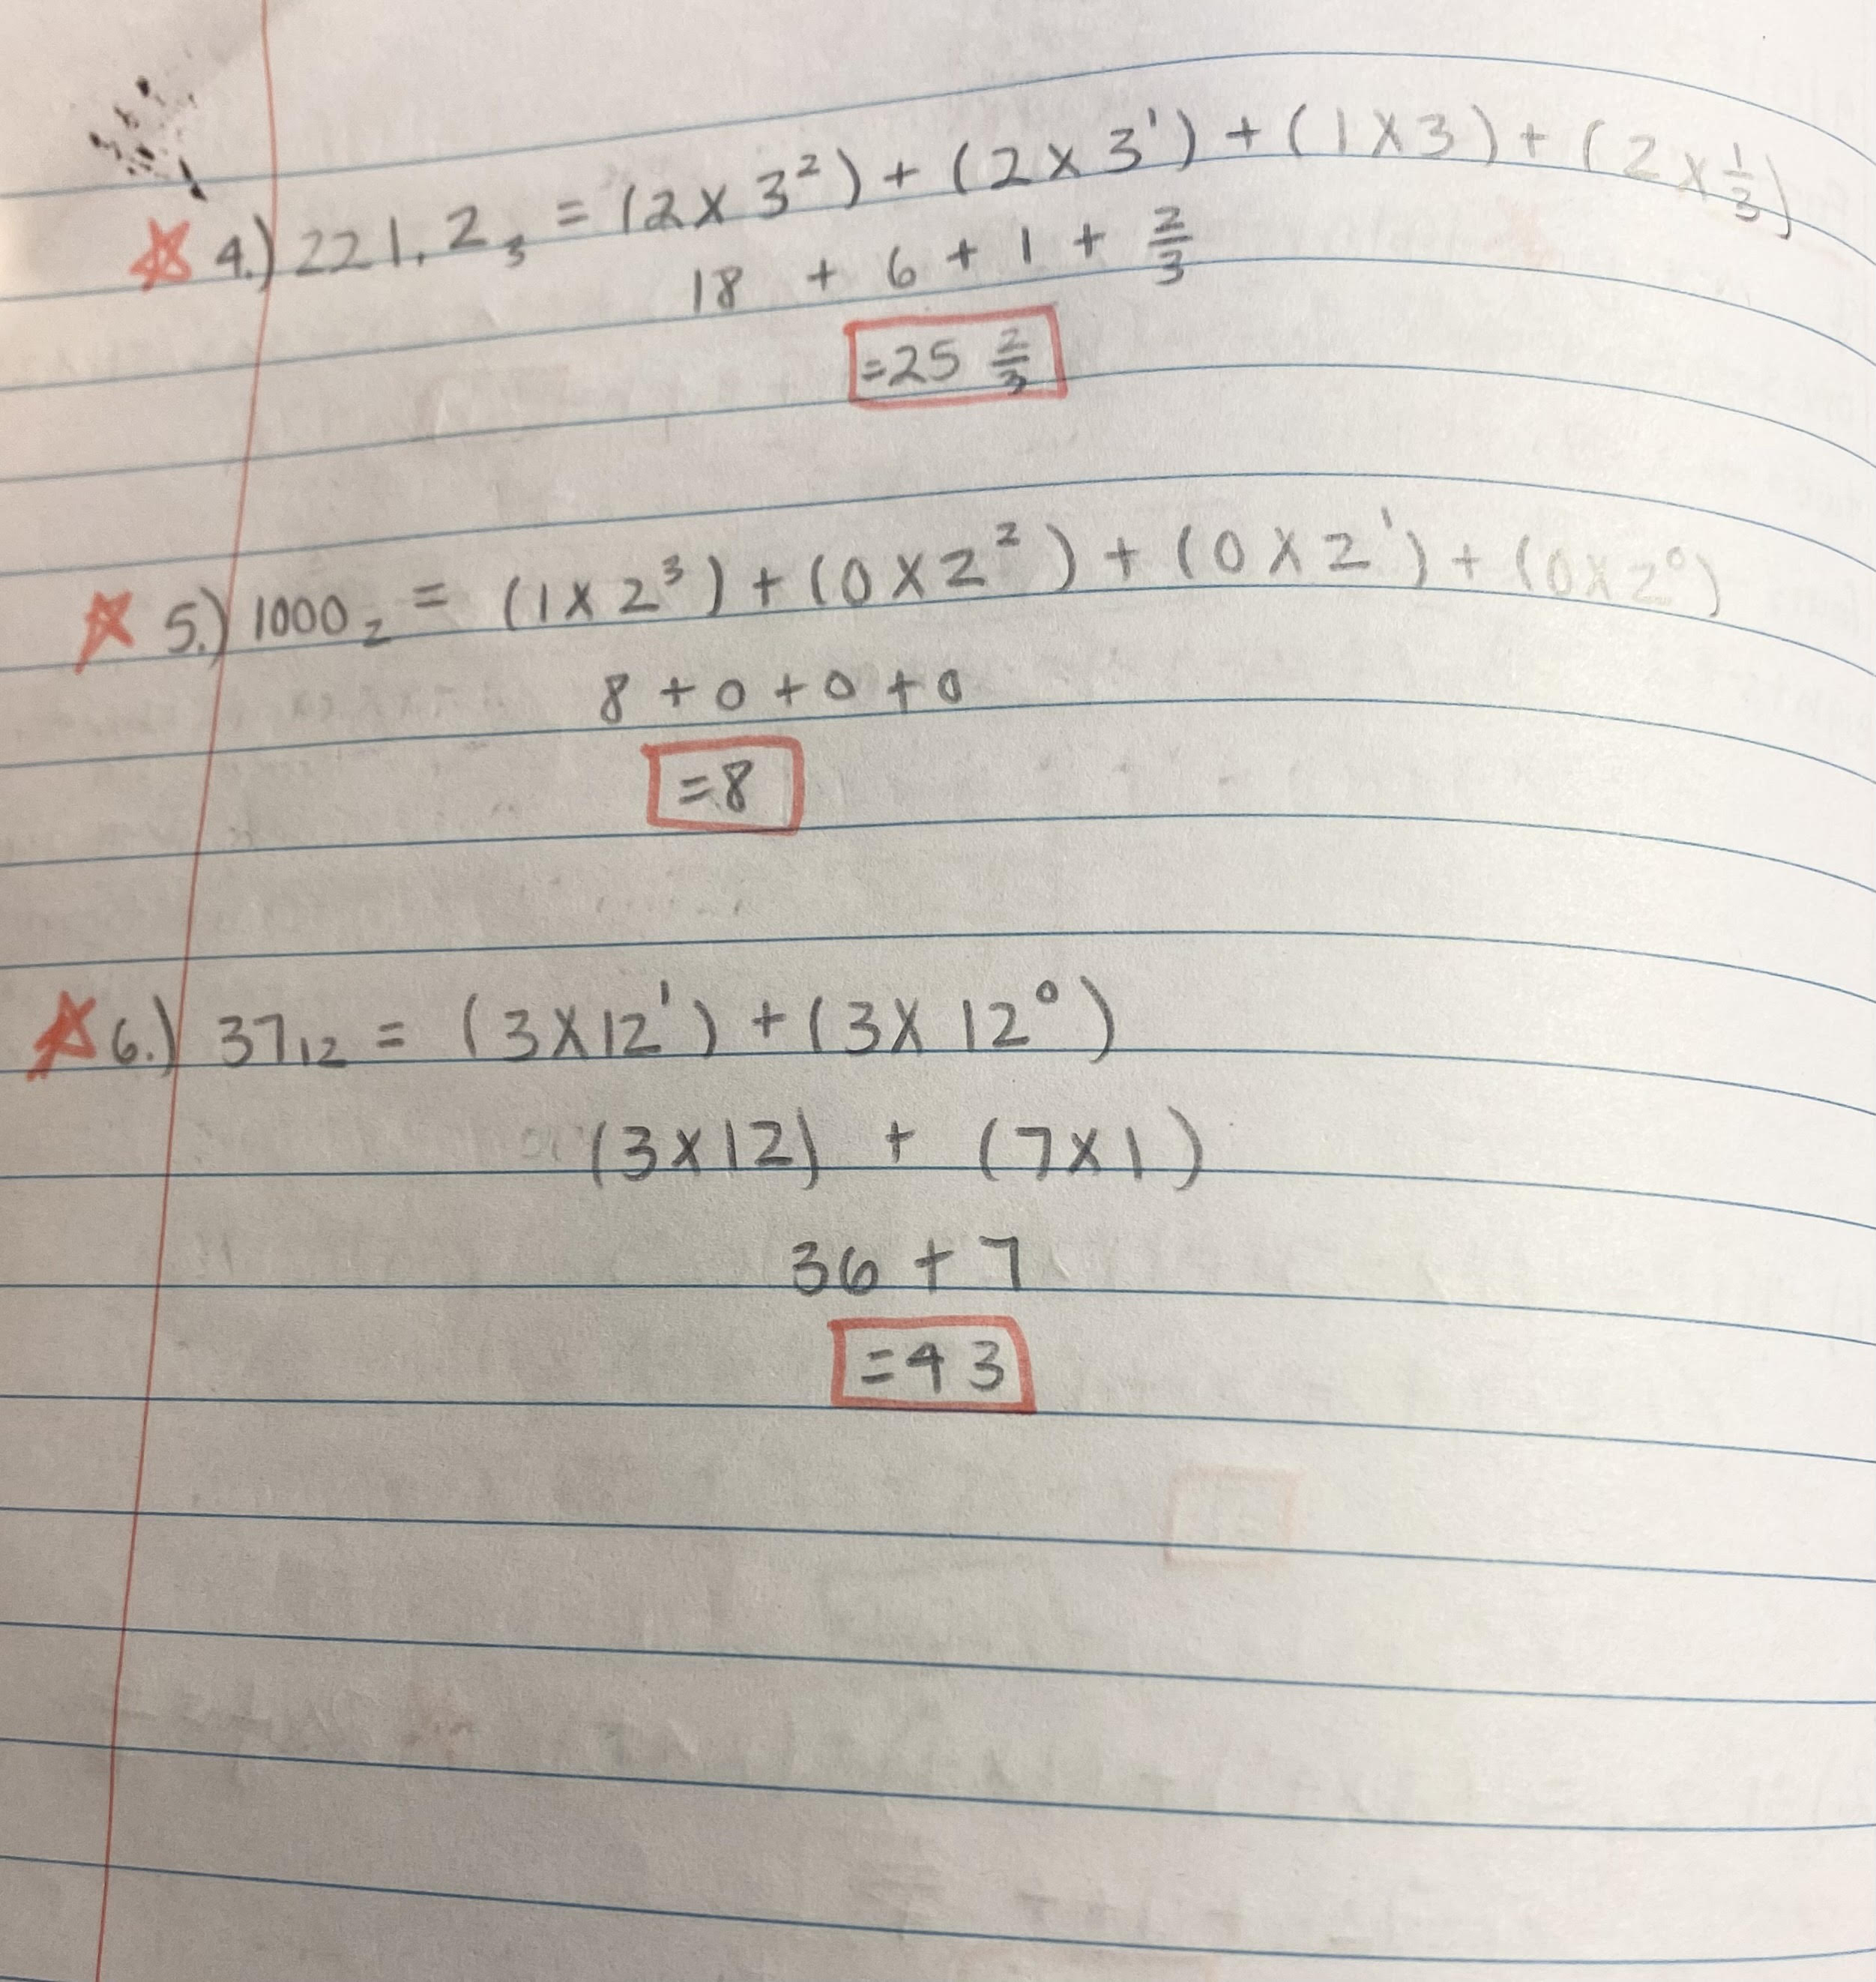 ☆ 4.) 221.2₃ = (2 x 3²) + (2 x 3¹) + (1 x 3) + (2 x 1/3)
18 + 6 + 1 + 2/3
=25 2/3
☆ 5.) 1000₂ = (1 x 2³) + (0 x 2²) + (0 x 2¹) + (0 x 2⁰)
8 + 0 + 0 + 0
=8
☆ 6.) 37₁₂ = (3 x 12¹) + (3 x 12⁰)
(3 x 12) + (7 x 1)
36 + 7
=43